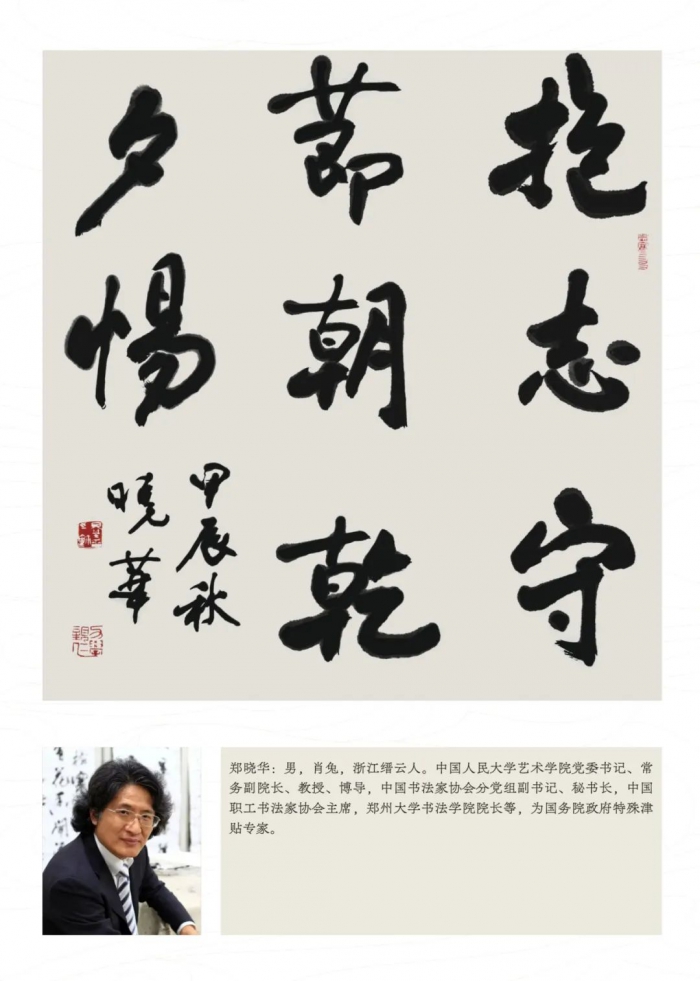 抱志守
節朝乾
夕惕
甲辰秋
曉華
郑晓华：男，肖兔，浙江缙云人。中国人民大学艺术学院党委书记、常
务副院长、教授、博导，中国书法家协会分党组副书记、秘书长，中国
职工书法家协会主席，郑州大学书法学院院长等，为国务院政府特殊津
贴专家。